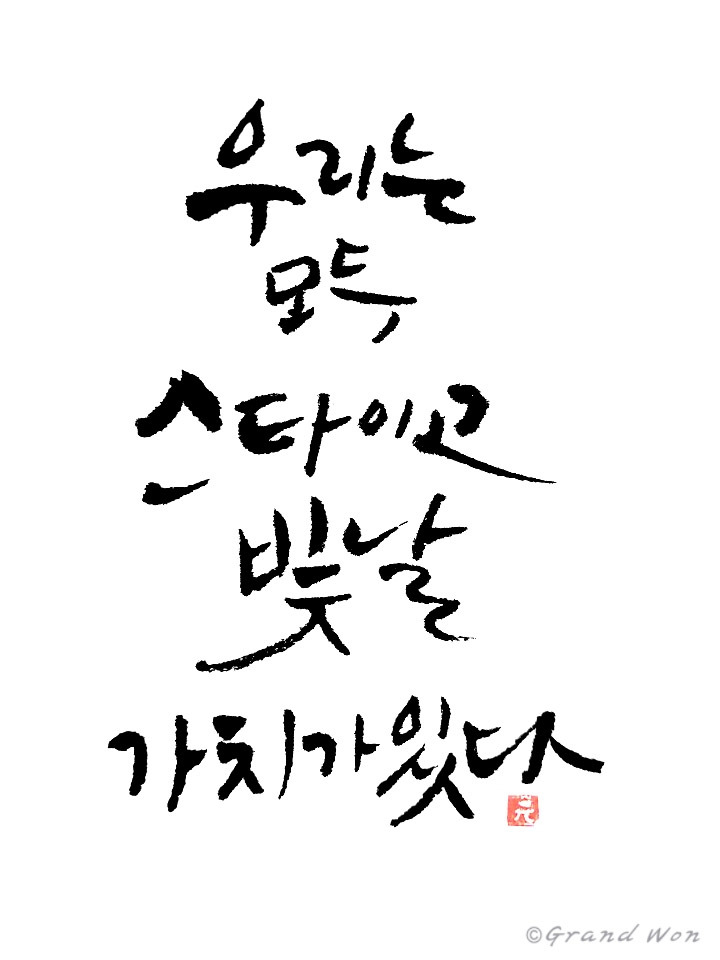 우리는
모두
스타이고
빛날
가치가 있다
元
©Grand Won